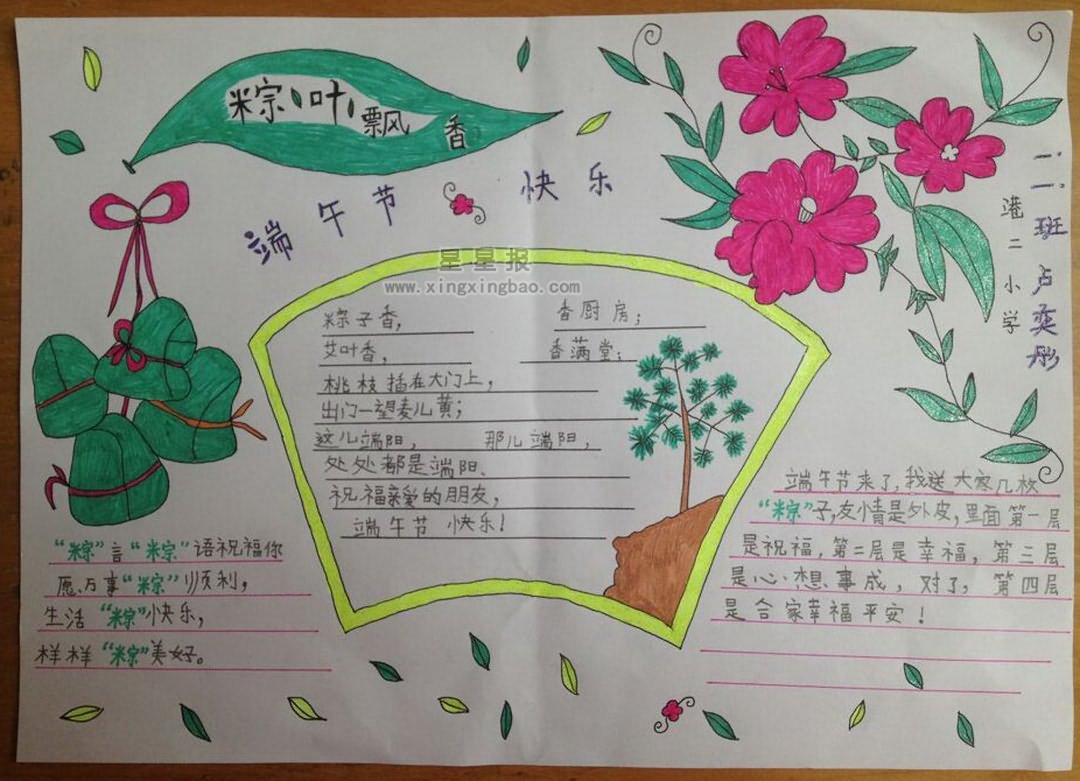 粽叶飘香
端午节 快乐
二.一班 卢奕彤
港二小学
星星报
www.xingxingbao.com
粽子香， 香厨房；
艾叶香， 香满堂；
桃枝插在大门上，
出门一望麦儿黄；
这儿端阳， 那儿端阳，
处处都是端阳、
祝福亲爱的朋友，
端午节 快乐！
“粽”言“粽”语祝福你
愿万事“粽”顺利，
生活“粽”快乐，
样样“粽”美好。
端午节来了，我送大家几枚
“粽”子，友情是外皮，里面第一层
是祝福，第二层是幸福，第三层
是心想事成，对了，第四层
是合家幸福平安！